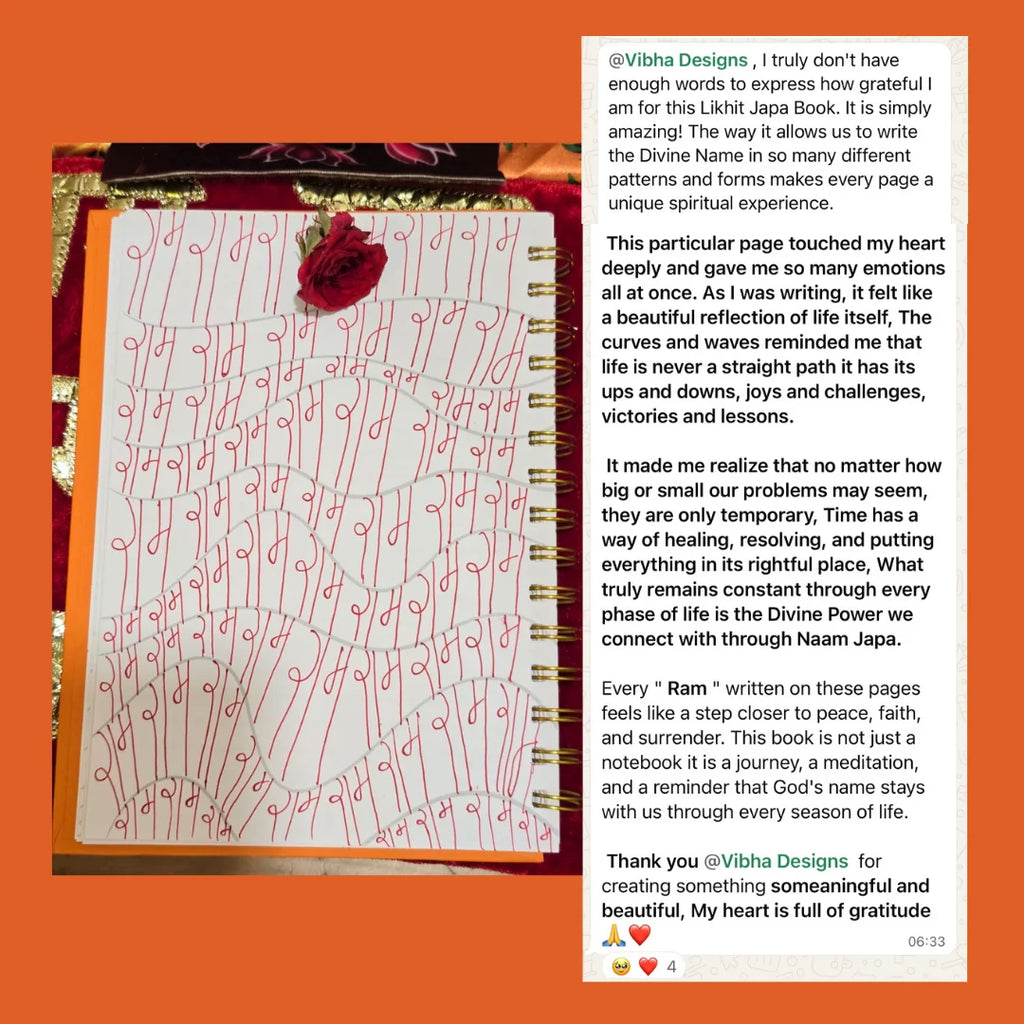 राम राम राम राम राम
राम राम राम राम राम
राम राम राम राम राम राम
राम राम राम राम राम राम
राम राम राम राम राम राम
राम राम राम राम राम राम
राम राम राम राम राम राम
राम राम राम राम राम राम
राम राम राम राम राम
@Vibha Designs , I truly don't have
enough words to express how grateful I
am for this Likhit Japa Book. It is simply
amazing! The way it allows us to write
the Divine Name in so many different
patterns and forms makes every page a
unique spiritual experience.
This particular page touched my heart
deeply and gave me so many emotions
all at once. As I was writing, it felt like
a beautiful reflection of life itself, The
curves and waves reminded me that
life is never a straight path it has its
ups and downs, joys and challenges,
victories and lessons.
It made me realize that no matter how
big or small our problems may seem,
they are only temporary, Time has a
way of healing, resolving, and putting
everything in its rightful place, What
truly remains constant through every
phase of life is the Divine Power we
connect with through Naam Japa.
Every " Ram " written on these pages
feels like a step closer to peace, faith,
and surrender. This book is not just a
notebook it is a journey, a meditation,
and a reminder that God's name stays
with us through every season of life.
Thank you @Vibha Designs for
creating something someaningful and
beautiful, My heart is full of gratitude
🙏❤️
06:33
🥹 ❤️ 4